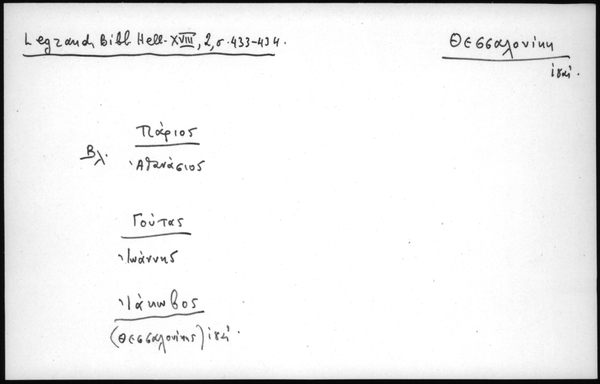 Legrand, Bibl. Hell. XVIII, 2, σ. 433-434.
Θεσσαλονίκη
ιη΄.
Πάριος
Βλ. Ἀθανάσιος
Γούτας
Ἰωάννης
Ἰάκωβος
(Θεσσαλονίκης)